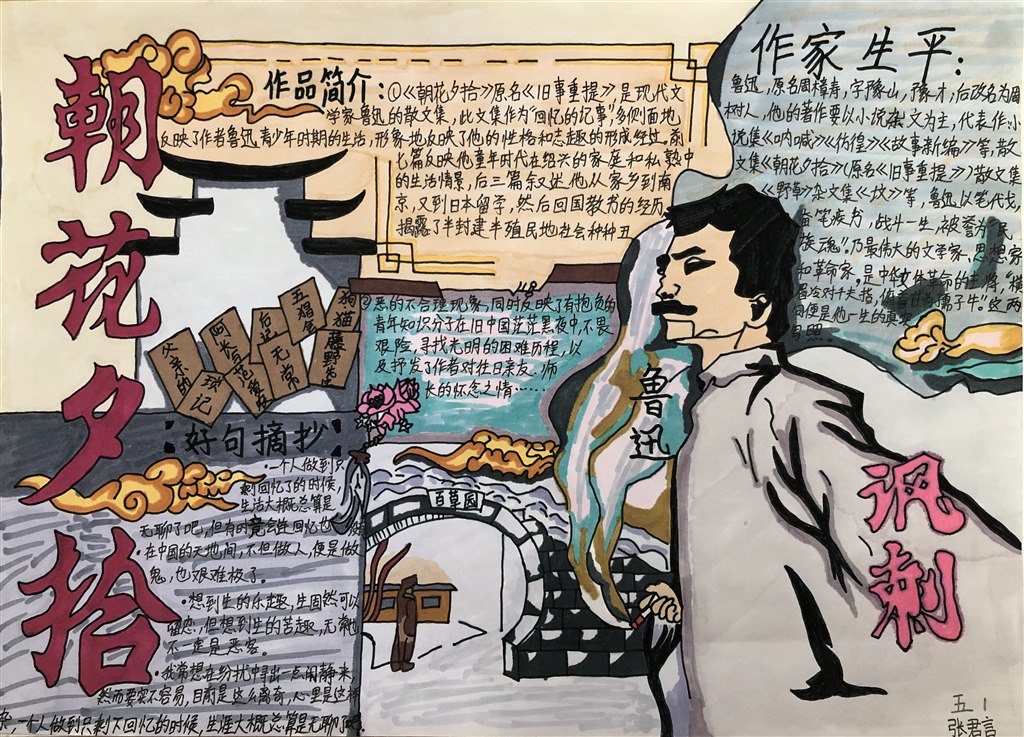 朝花夕拾
作品简介:①《朝花夕拾》原名《旧事重提》是现代文
学家鲁迅的散文集,此文集作为“回忆的记事”,多侧面地
反映了作者鲁迅青少年时期的生活,形象地反映了他的性格和志趣的形成经过。前
七篇反映他童年时代在绍兴的家庭和私塾中
的生活情景,后三篇叙述他从家乡到南
京,又到日本留学,然后回国教书的经历
揭露了半封建半殖民地社会种种丑
②恶的不合理现象,同时反映了有抱负的
青年知识分子在旧中国茫茫黑夜中,不畏
艰险,寻找光明的困难历程,以
及抒发了作者对往日亲友、师
长的怀念之情……
作家生平:
鲁迅,原名周樟寿,字豫山,豫才,后改名为周
树人,他的著作要以小说杂文为主,代表作小
说集《呐喊》《彷徨》《故事新编》等,散
文集《朝花夕拾》(原名《旧事重提》)散文集
《野草》杂文集《坟》等,鲁迅以笔代戈,
奋笔疾书,战斗一生,被誉为“民
族魂”。乃最伟大的文学家,思想家
和革命家,是中 文体革命的主将,“横
眉冷对千夫指,俯首甘为孺子牛”这两
句便是他一生的真实
写照。
父亲的
琐记
阿长与
后记
无常
五猖会
狗猫
藤野先生
好句摘抄
·一个人做到只
剩回忆了的时候,
生活大概总算是
无聊了吧,但有时竟会连回忆也
·在中国的天地间,不但做人,便是做
鬼,也艰难极了。
·想到生的乐趣,生固然可以
留恋,但想到生的苦趣,无常也
不一定是恶客。
·我常想在纷扰中寻出一点闲静来,
然而委实不容易,目前是这么离奇,心里是这样
杂,一个人做到只剩下回忆的时候,生涯大概总算是无聊了吧。
百草园
鲁迅
讽刺
五1
张君言